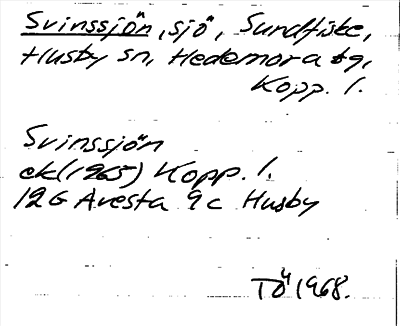 Svinssjön, sjö, Sundfiske,
Husby sn, Hedemora tg,
Kopp. l.
Svinssjön
ek (1965) Kopp. l.
12G Avesta 9c Husby
TÖ 1968.